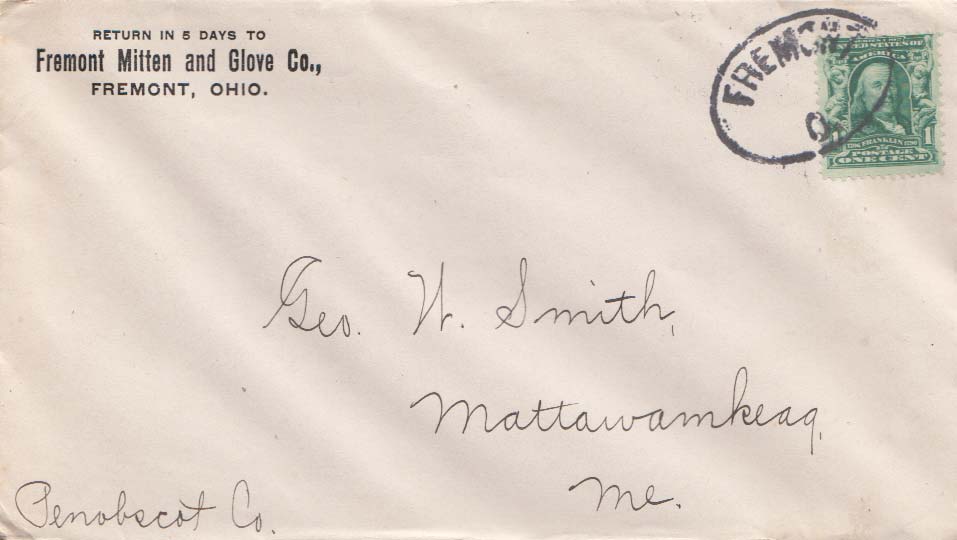 RETURN IN 5 DAYS TO
Fremont Mitten and Glove Co.,
FREMONT, OHIO.
FREMONT
O.
UNITED STATES OF
AMERICA
1
1706 FRANKLIN 1790
POSTAGE
ONE CENT
Geo. W. Smith,
Mattawamkeag,
Me.
Penobscot Co.